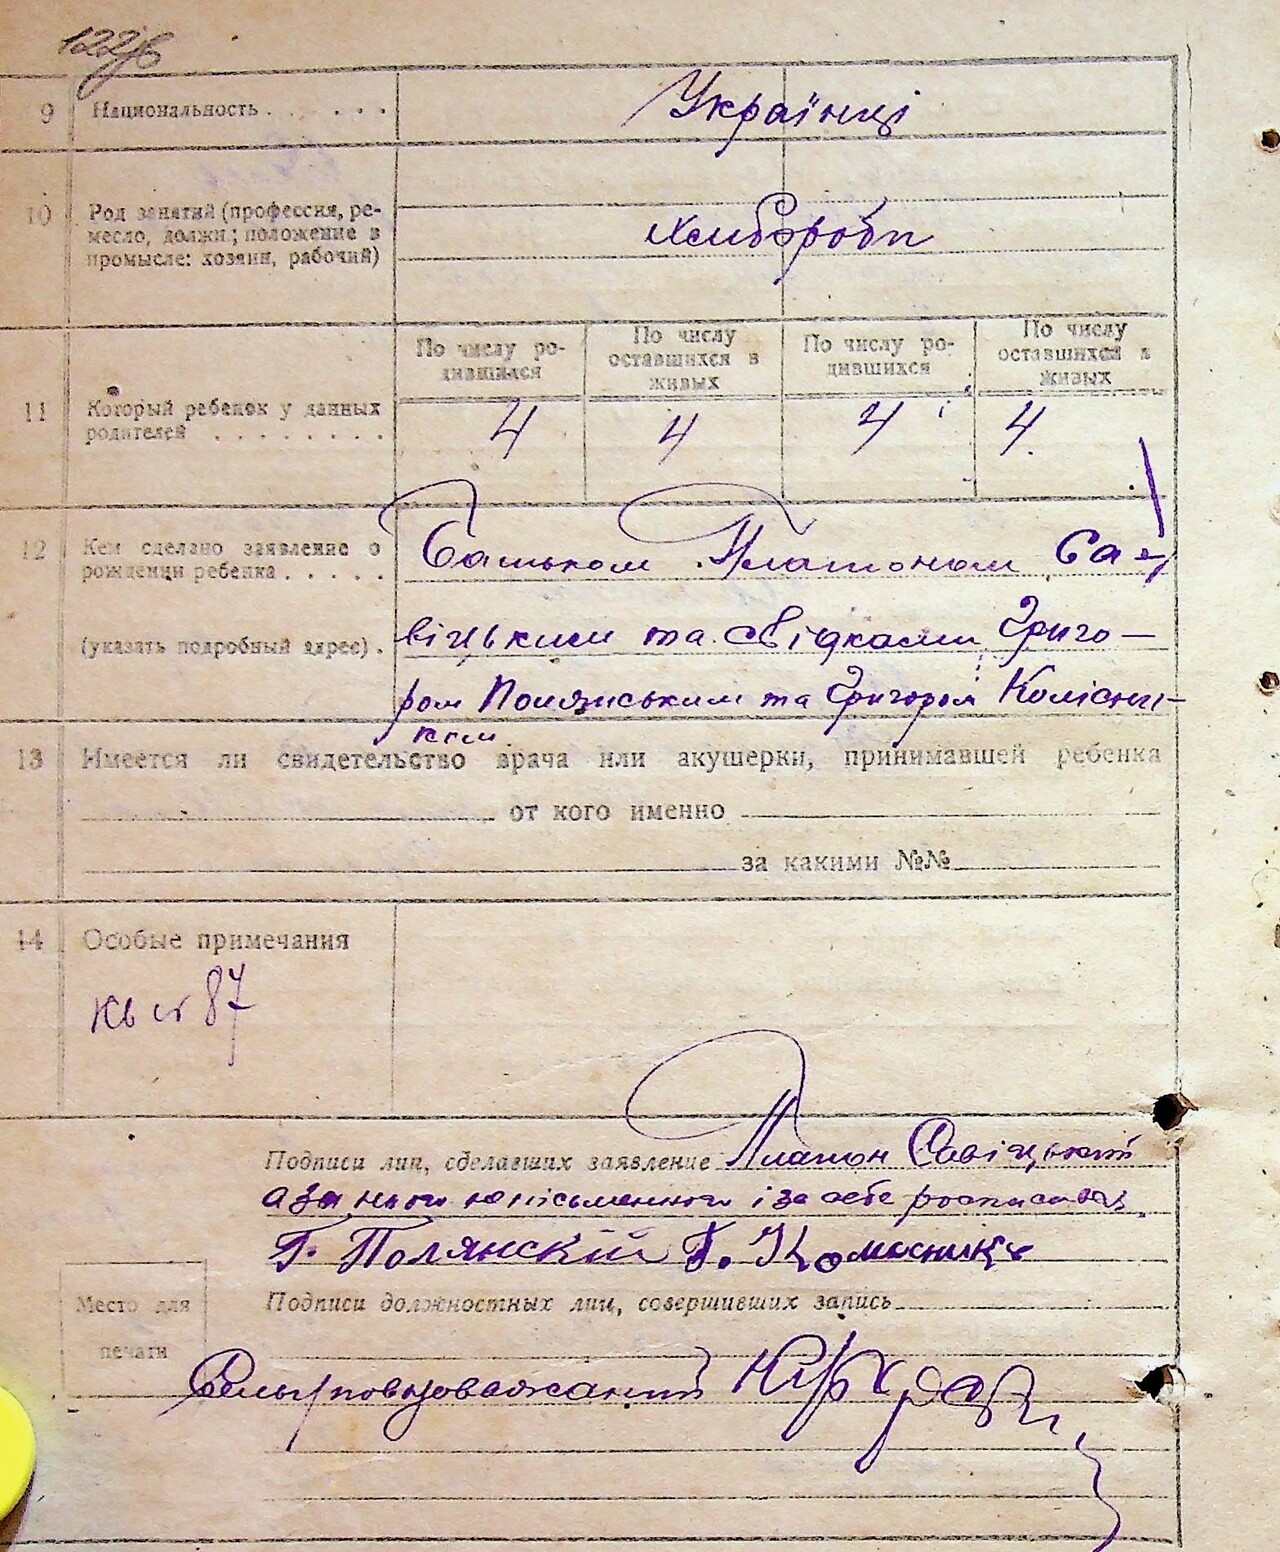 122
9 Национальность . . . . . . Українці
10 Род занятий (профессия, ре-
месло, должн.; положение в
промысле: хозяин, рабочий)
хлибороби
11 Который ребенок у данных
родителей . . . . . . . .
По числу ро-
дившихся
По числу
оставшихся в
живых
По числу ро-
дившихся
По числу
оставшихся в
живых
4 4 4 4
12 Кем сделано заявление о
рождении ребенка . . . . .
(указать подробный адрес) .
Батьком Платоном Са-
віцьким та свідками Григо-
ром Полянським та Григором Колісни-
ком
13 Имеется ли свидетельство врача или акушерки, принимавшей ребенка
от кого именно
за какими №№
14 Особые примечания
87
Подписи лиц, сделавших заявление Платон Савіцький
а за нього і за себе росписались
Г. Полянскій Г. Колисник
Подписи должностных лиц, совершивших запись
Место для
печати